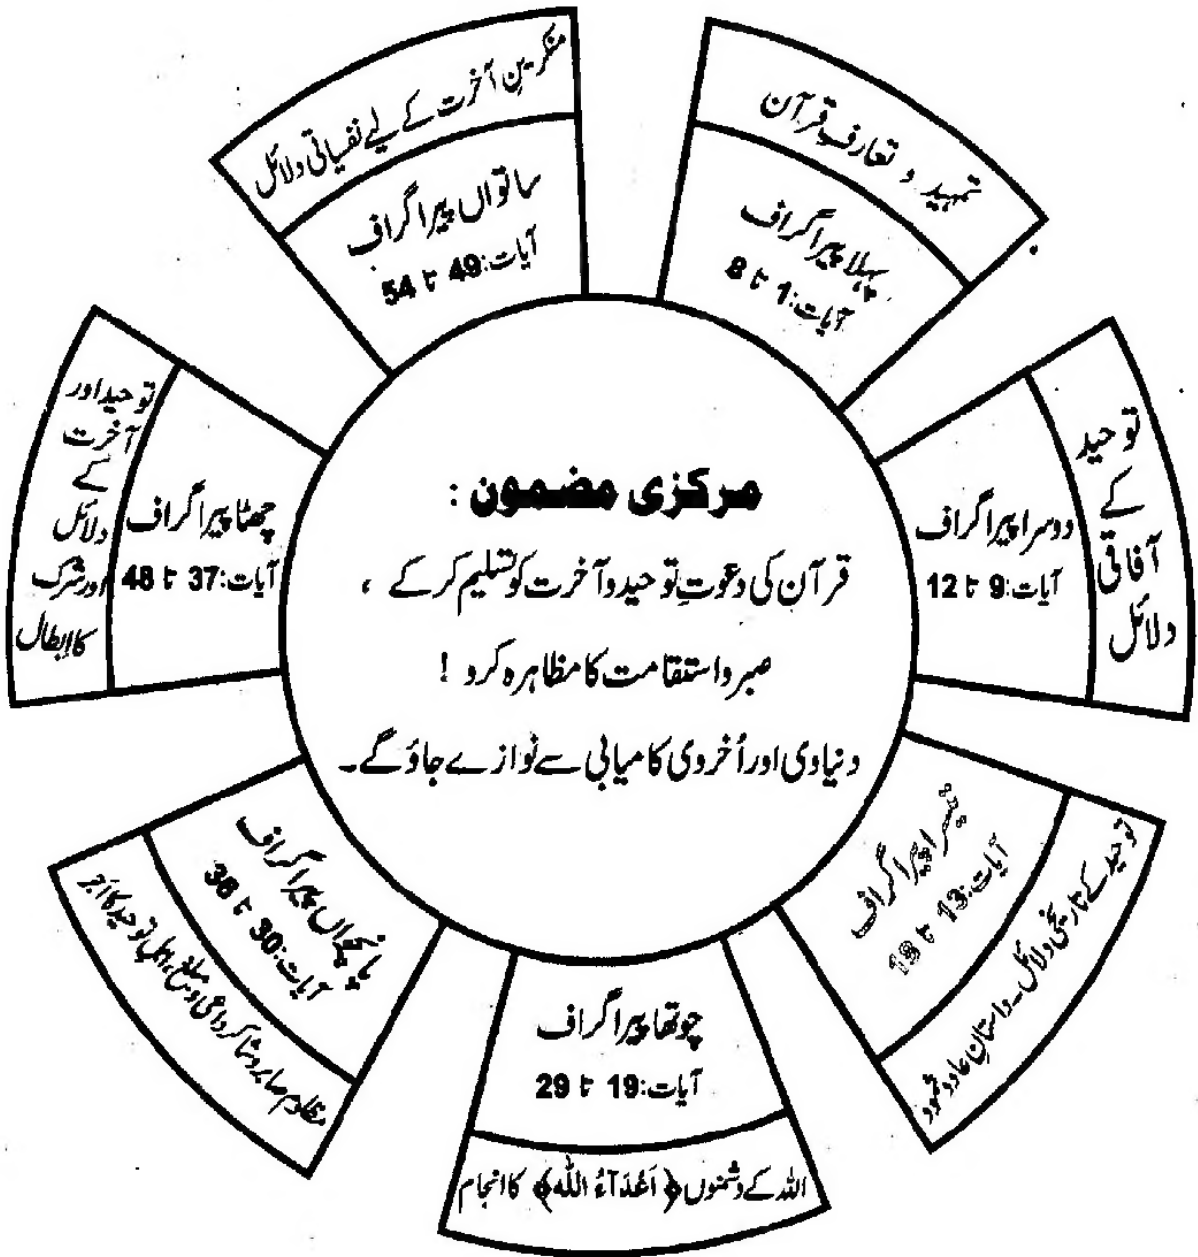 مرکزی مضمون :
قرآن کی دعوتِ توحید و آخرت کو تسلیم کر کے ،
صبر و استقامت کا مظاہرہ کرو !
دنیاوی اور اُخروی کامیابی سے نوازے جاؤ گے۔
تمہید و تعارفِ قرآن
پہلا پیراگراف
آیات:1 تا 8
توحید
کے
آفاقی
دلائل
دوسرا پیراگراف
آیات:9 تا 12
توحید کے تاریخی دلائل۔داستانِ عاد و ثمود
تیسرا پیراگراف
آیات:13 تا 18
چوتھا پیراگراف
آیات:19 تا 29
اللہ کے دشمنوں ﴿اَعْدَآءُ اللّٰہ﴾ کا انجام
پانچواں پیراگراف
آیات:30 تا 36
مظلوم صابر و شاکر داعی و مبلغ، اہلِ توحید کا اَجر
توحید اور
آخرت
کے
دلائل
اور شرک
کا اِبطال
چھٹا پیراگراف
آیات:37 تا 48
منکرینِ آخرت کے لیے نفسیاتی دلائل
ساتواں پیراگراف
آیات:49 تا 54